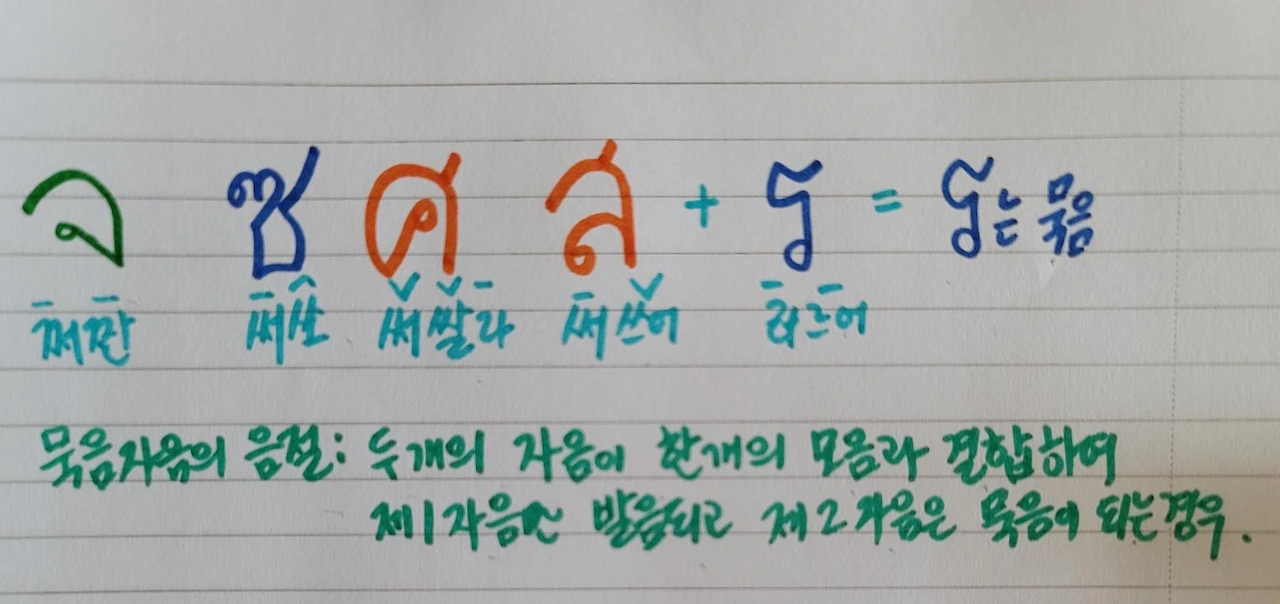 จ ซ ศ ส + ร = ร는 묵음
쩌짠 써쏘 써쌀라 써쓰어 러르어
묵음자음의 음절: 두개의 자음이 한개의 모음과 결합하여
제1자음만 발음되고 제2자음은 묵음이 되는경우.